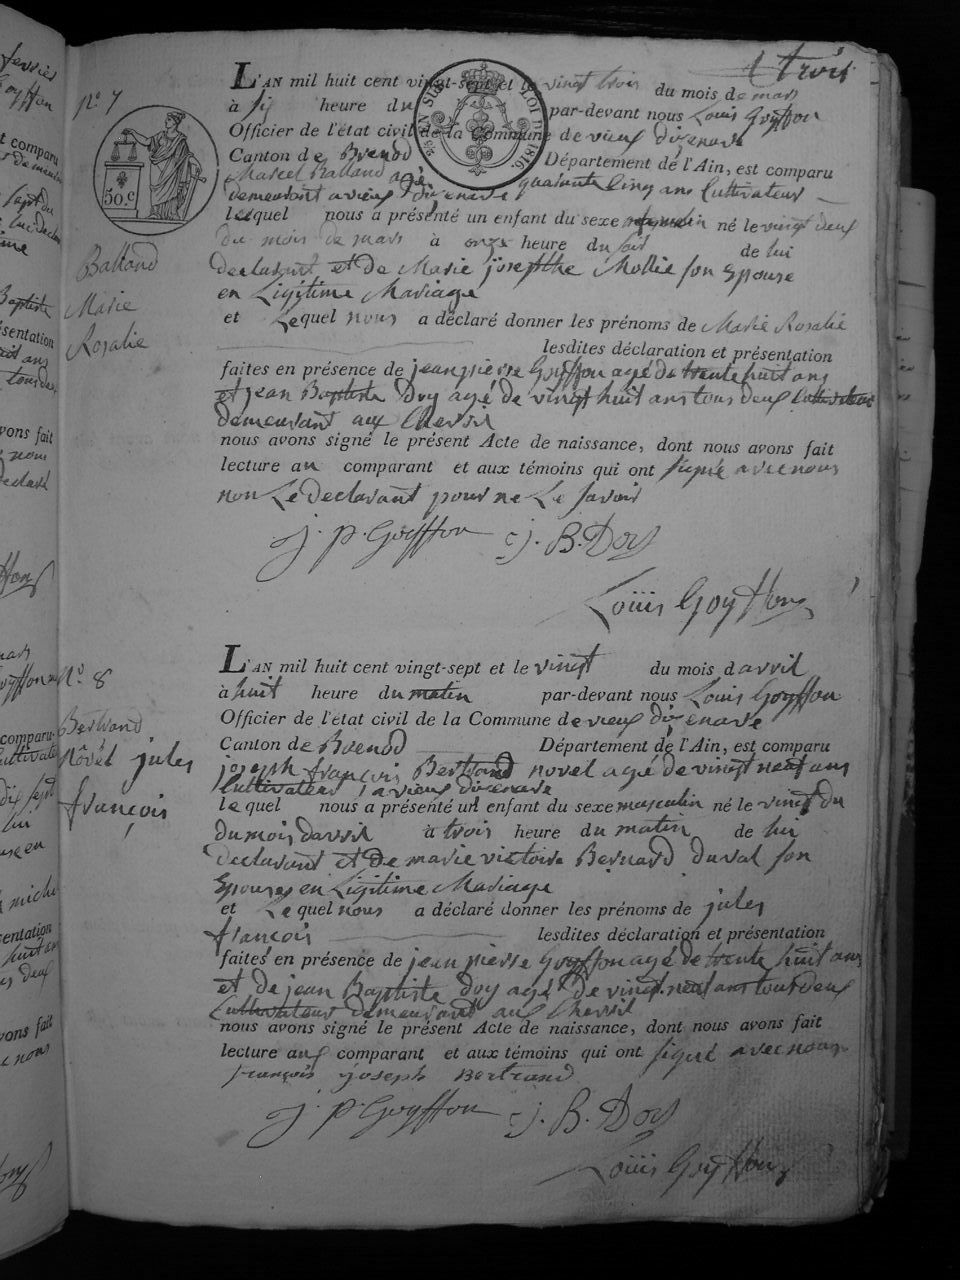 trois
N.o 7
L'AN mil huit cent vingt-sept et le vingt trois du mois de mars
à six heure du par-devant nous Louis Goyffon
Officier de l'état civil de la Commune de vieux dizenave
Canton de Brenod Département de l'Ain, est comparu
Marcel Balland agé quarante Cinq ans Cultivateur
demeurant a vieux dizenave
lequel nous a présenté un enfant du sexe né le vingt deux
du mois de mars à onze heure du soir de lui
declarant et de Marie josephte Mollie son Epouse
en Ligitime Mariage
et Lequel nous a déclaré donner les prénoms de Marie Rosalie
lesdites déclaration et présentation
faites en présence de jean pierre Goyffon agé de trente huit ans
et jean Baptiste Doy agé de vingt huit ans tous deux Cultivateur
demeurant aux Chersil
nous avons signé le présent Acte de naissance, dont nous avons fait
lecture au comparant et aux témoins qui ont signé avec nous
non Le declarant pour ne Le savoir
Balland
Marie
Rosalie
50.c
LOI DE 1816.
j. p. Goyffon j. B. Doy
Louis Goyffon
N.o 8
L'AN mil huit cent vingt-sept et le vingt du mois d avril
à huit heure du matin par-devant nous Louis Goyffon
Officier de l'état civil de la Commune de vieux dizenave
Canton de Brenod Département de l'Ain, est comparu
joseph françois Bertrand novel agé de vingt neuf ans
Cultivateur a vieux dizenave
lequel nous a présenté un enfant du sexe masculin né le vingt du
du mois davril à trois heure du matin de lui
declarant et de marie victoire Bernard duval son
Epouse en Ligitime Mariage
et Le quel nous a déclaré donner les prénoms de jules
françois lesdites déclaration et présentation
faites en présence de jean pierre Goyffon agé de trente huit ans
et de jean Baptiste doy agé de vingt neuf ans tout deux
Cultivateur demeurant aux Chersil
nous avons signé le présent Acte de naissance, dont nous avons fait
lecture aux comparant et aux témoins qui ont signé avec nous
françois joseph Bertrand
Bertrand
Nôvél jules
françois
j. p. Goyffon j. B. Doy
Louis Goyffon